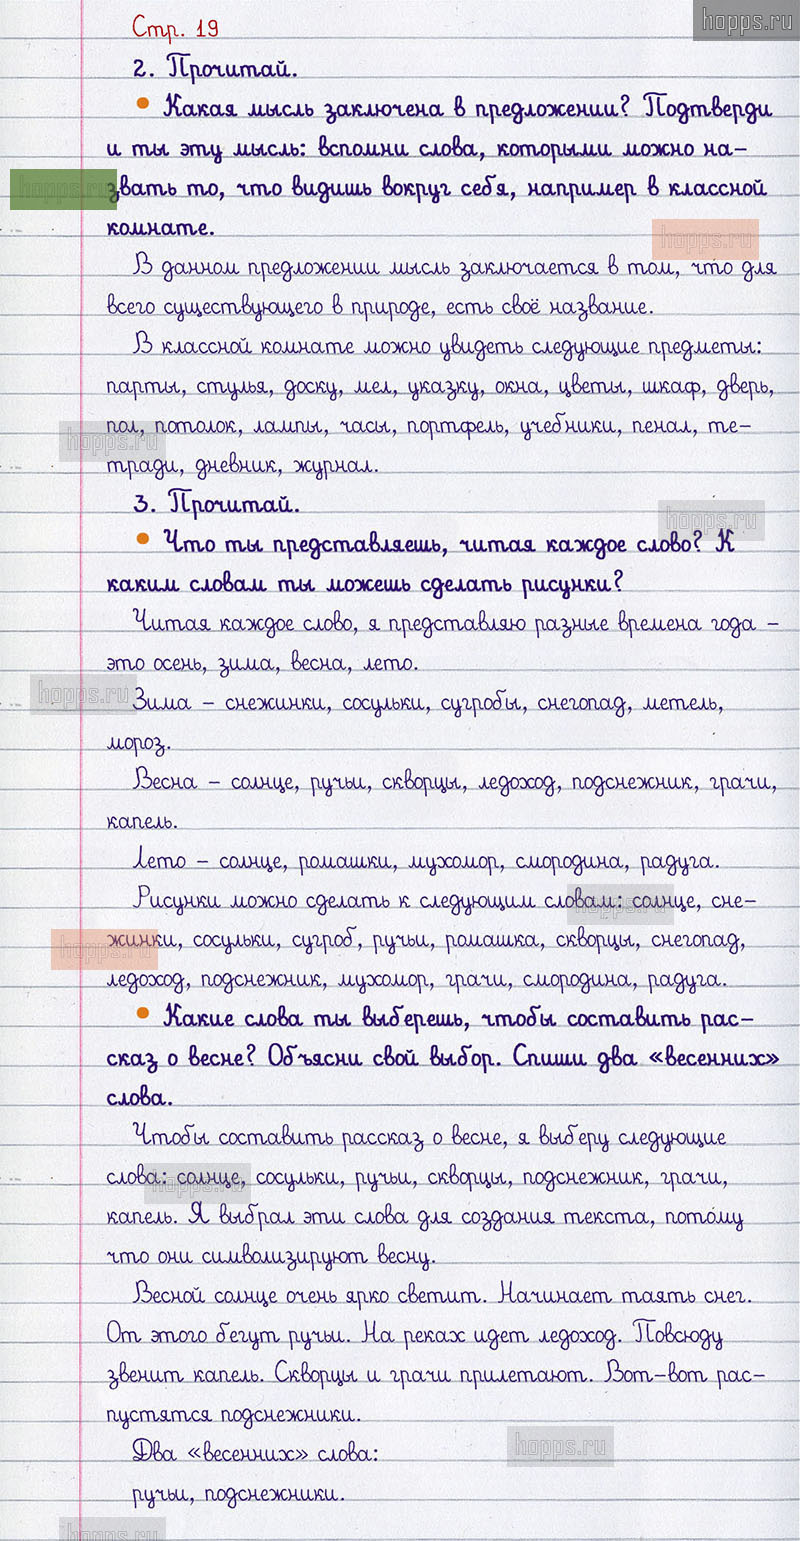 hopps.ru
Стр. 19
2. Прочитай.
• Какая мысль заключена в предложении? Подтверди
и ты эту мысль: вспомни слова, которыми можно на-
hopps.ru
звать то, что видишь вокруг себя, например в классной
комнате.
hopps.ru
В данном предложении мысль заключается в том, что для
всего существующего в природе, есть своё название.
В классной комнате можно увидеть следующие предметы:
парты, стулья, доску, мел, указку, окна, цветы, шкаф, дверь,
пол, потолок, лампы, часы, портфель, учебники, пенал, те-
hopps.ru
тради, дневник, журнал.
3. Прочитай.
hopps.ru
• Что ты представляешь, читая каждое слово? К
каким словам ты можешь сделать рисунки?
Читая каждое слово, я представляю разные времена года –
это осень, зима, весна, лето.
hopps.ru
Зима – снежинки, сосульки, сугробы, снегопад, метель,
мороз.
Весна – солнце, ручьи, скворцы, ледоход, подснежник, грачи,
капель.
Лето – солнце, ромашки, мухомор, смородина, радуга.
Рисунки можно сделать к следующим словам: солнце, сне-
hopps.ru
жинки, сосульки, сугроб, ручьи, ромашка, скворцы, снегопад,
hopps.ru
ледоход, подснежник, мухомор, грачи, смородина, радуга.
• Какие слова ты выберешь, чтобы составить рас-
сказ о весне? Объясни свой выбор. Спиши два «весенних»
слова.
Чтобы составить рассказ о весне, я выберу следующие
слова: солнце, сосульки, ручьи, скворцы, подснежник, грачи,
hopps.ru
капель. Я выбрал эти слова для создания текста, потому
что они символизируют весну.
Весной солнце очень ярко светит. Начинает таять снег.
От этого бегут ручьи. На реках идет ледоход. Повсюду
звенит капель. Скворцы и грачи прилетают. Вот-вот рас-
пустятся подснежники.
Два «весенних» слова:
hopps.ru
ручьи, подснежники.
hopps.ru